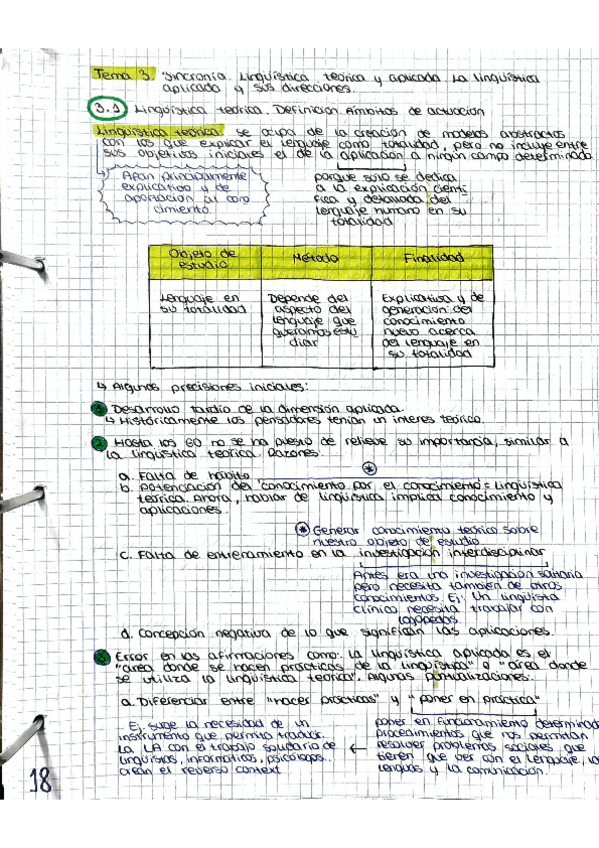 Tema 3. Sincronía. Lingüística teórica y aplicada. La lingüística
aplicada y sus direcciones.
3.1 Lingüística teórica. Definición. Ámbitos de actuación
Lingüística teórica: se ocupa de la creación de modelos abstractos
con los que explicar el lenguaje como totalidad, pero no incluye entre
sus objetivos iniciales el de la aplicación a ningún campo determinado
↳ Afán principalmente
explicativo y de
aportación al cono
cimiento
porque solo se dedica
a la explicación cientí
fica y detallada del
lenguaje humano en su
totalidad
Objeto de
estudio
Método
Finalidad
Lenguaje en
su totalidad
Depende del
aspecto del
lenguaje que
queramos estu
diar
Explicativa y de
generación del
conocimiento
nuevo acerca
del lenguaje en
su totalidad
↳ Algunas precisiones iniciales:
1 Desarrollo tardío de la dimensión aplicada.
↳ Históricamente los pensadores tenían un interés teórico.
2 Hasta los 60 no se ha puesto de relieve su importancia, similar a
la lingüística teórica. Razones:
a. Falta de hábito
b. Potenciación del "conocimiento por el conocimiento" = lingüística
teórica. Ahora, hablar de lingüística implica conocimiento y
aplicaciones.
* Generar conocimiento teórico sobre
nuestro objeto de estudio
c. Falta de entrenamiento en la investigación interdisciplinar
Antes era una investigación solitaria
pero necesita también de otros
conocimientos. Ej: Un lingüista
clínico necesita trabajar con
logopedas.
d. Concepción negativa de lo que significan las aplicaciones.
3 Error en las afirmaciones como: la lingüística aplicada es el
"área donde se hacen prácticas de la lingüística" o "área donde
se utiliza la lingüística teórica". Algunas puntualizaciones:
a. Diferenciar entre "hacer prácticas" y "poner en práctica"
Ej: surge la necesidad de un
instrumento que permita traducir.
La LA con el trabajo solidario de
lingüistas, informáticos, psicólogos...
crean el reverso context
←
poner en funcionamiento determinados
procedimientos que nos permitan
resolver problemas sociales que
tienen que ver con el lenguaje, las
lenguas y la comunicación.
18